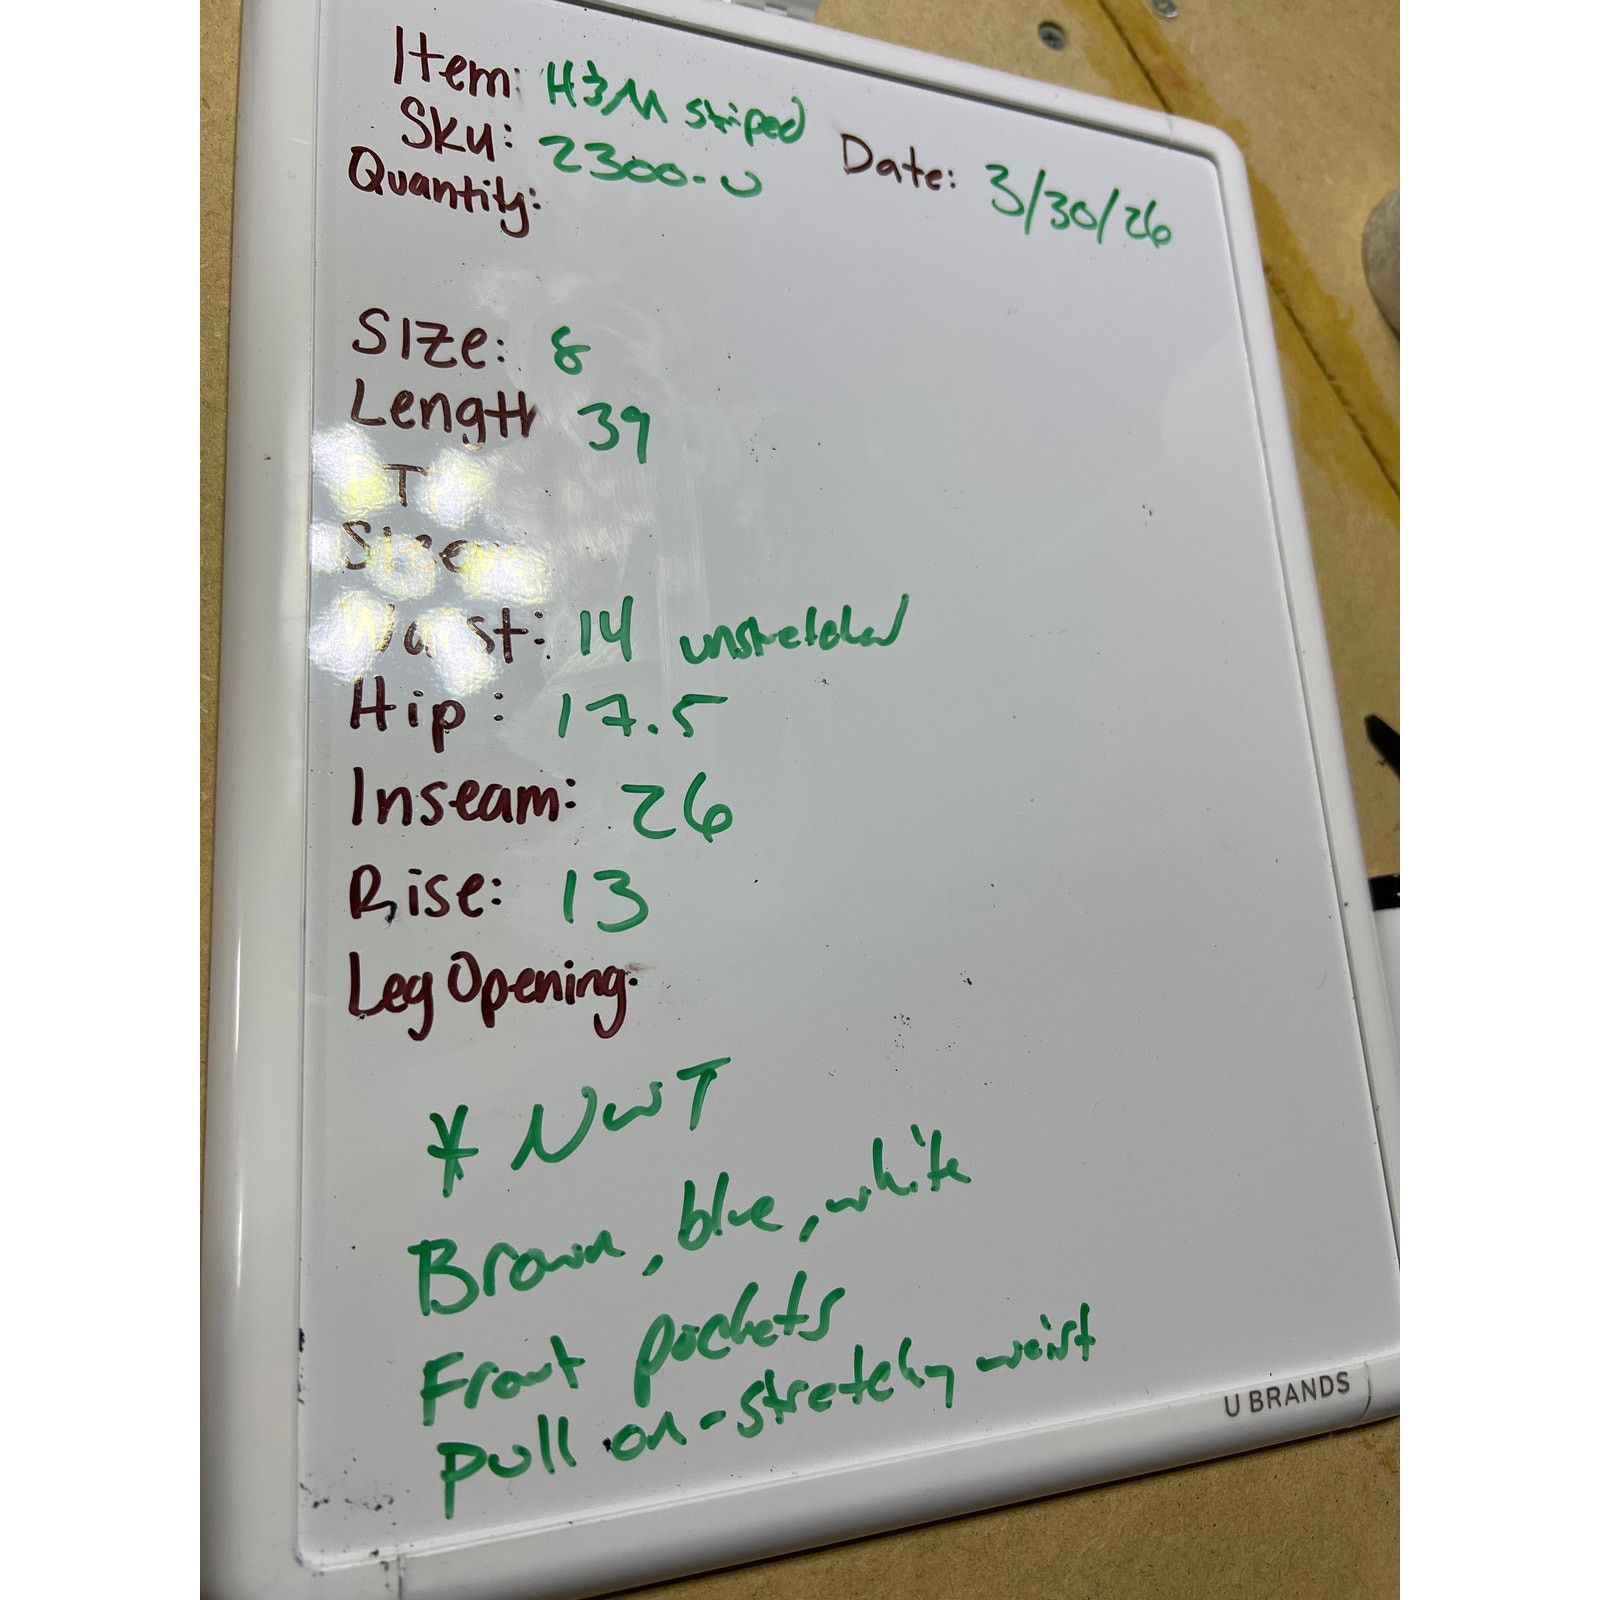 Item: H&M striped
Sku: 2300-U
Date: 3/30/26
Quantity:
Size: 8
Length 39
Waist: 14 unstretched
Hip: 17.5
Inseam: 26
Rise: 13
Leg Opening:
* NWT
Brown, blue, white
Front pockets
Pull on - stretchy waist
U BRANDS